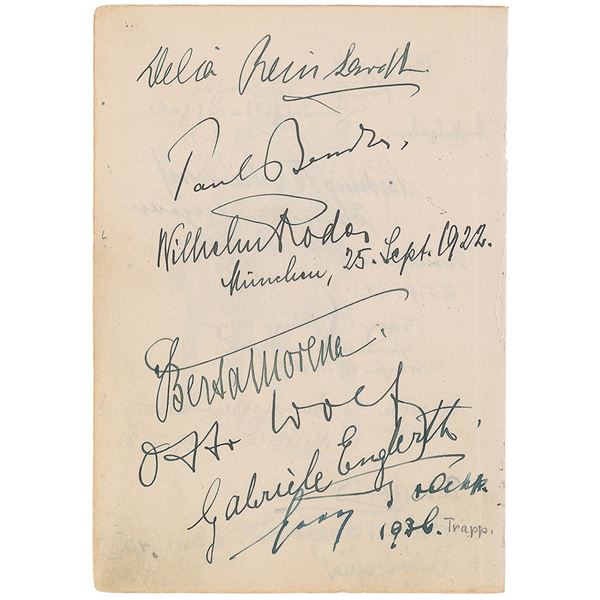 Delia Reinhardt
Paul Bender.
Wilhelm Rode,
München, 25. Sept. 1922.
Berta Morena.
Otto Wolf
Gabriele Englerth.
Trapp
1926. Trapp.